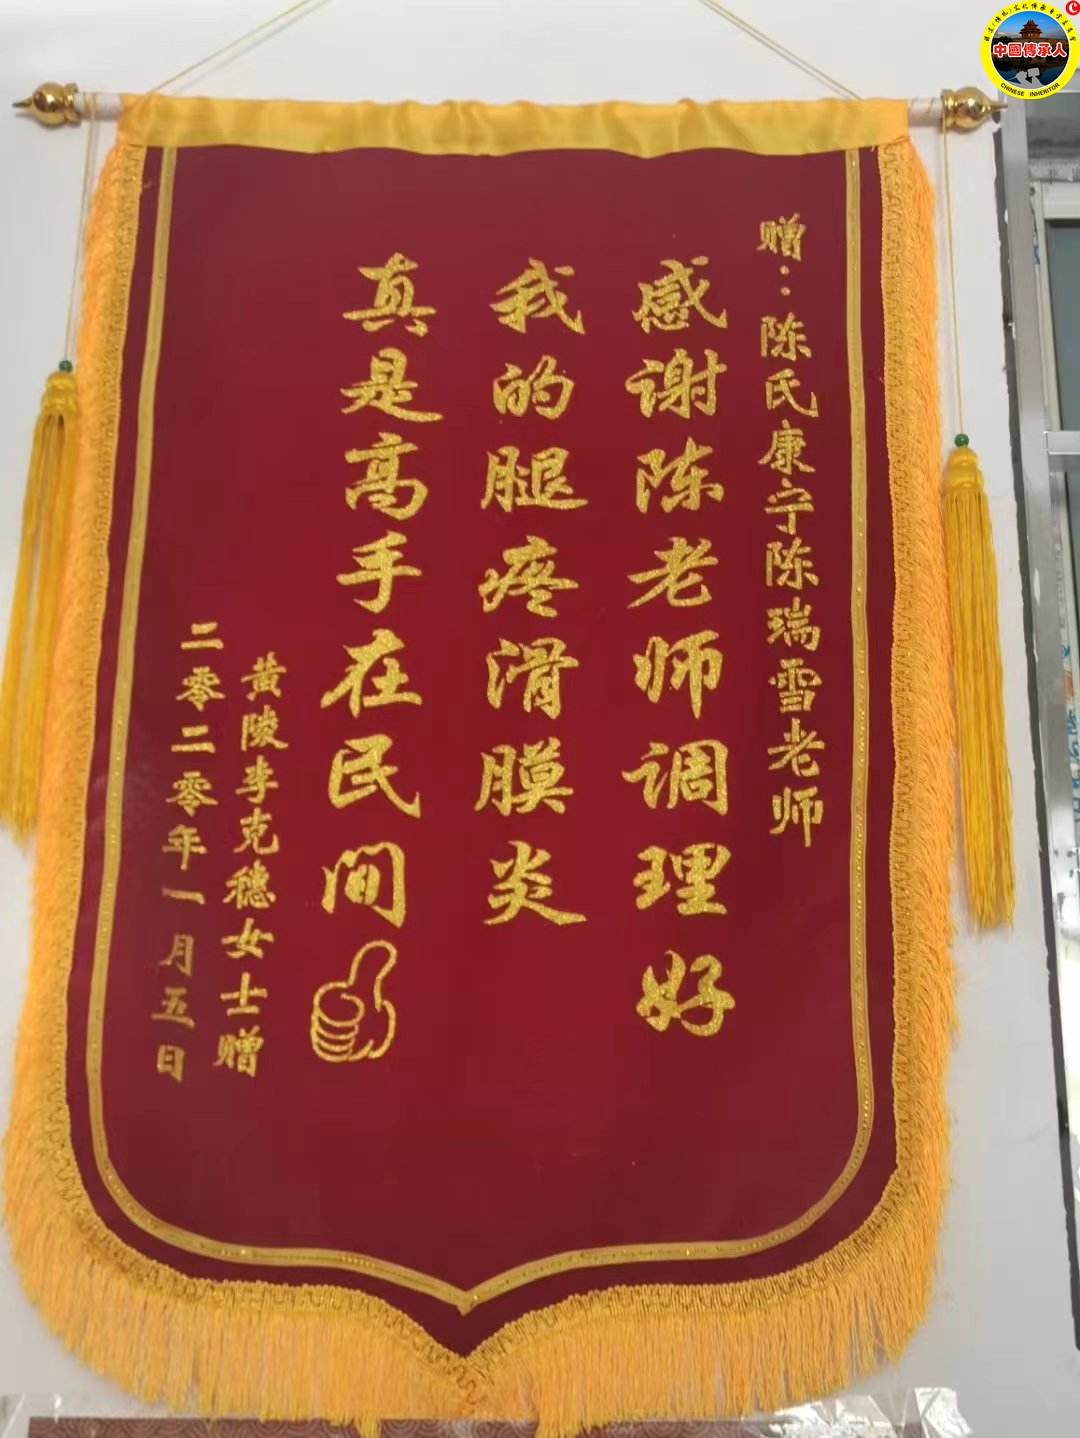 赠:陈氏康宁陈瑞雪老师
感谢陈老师调理好
我的腿疼滑膜炎
真是高手在民间
黄陵李克穗女士赠
二零二零年一月五日
中國傳承人
CHINESE INHERITOR